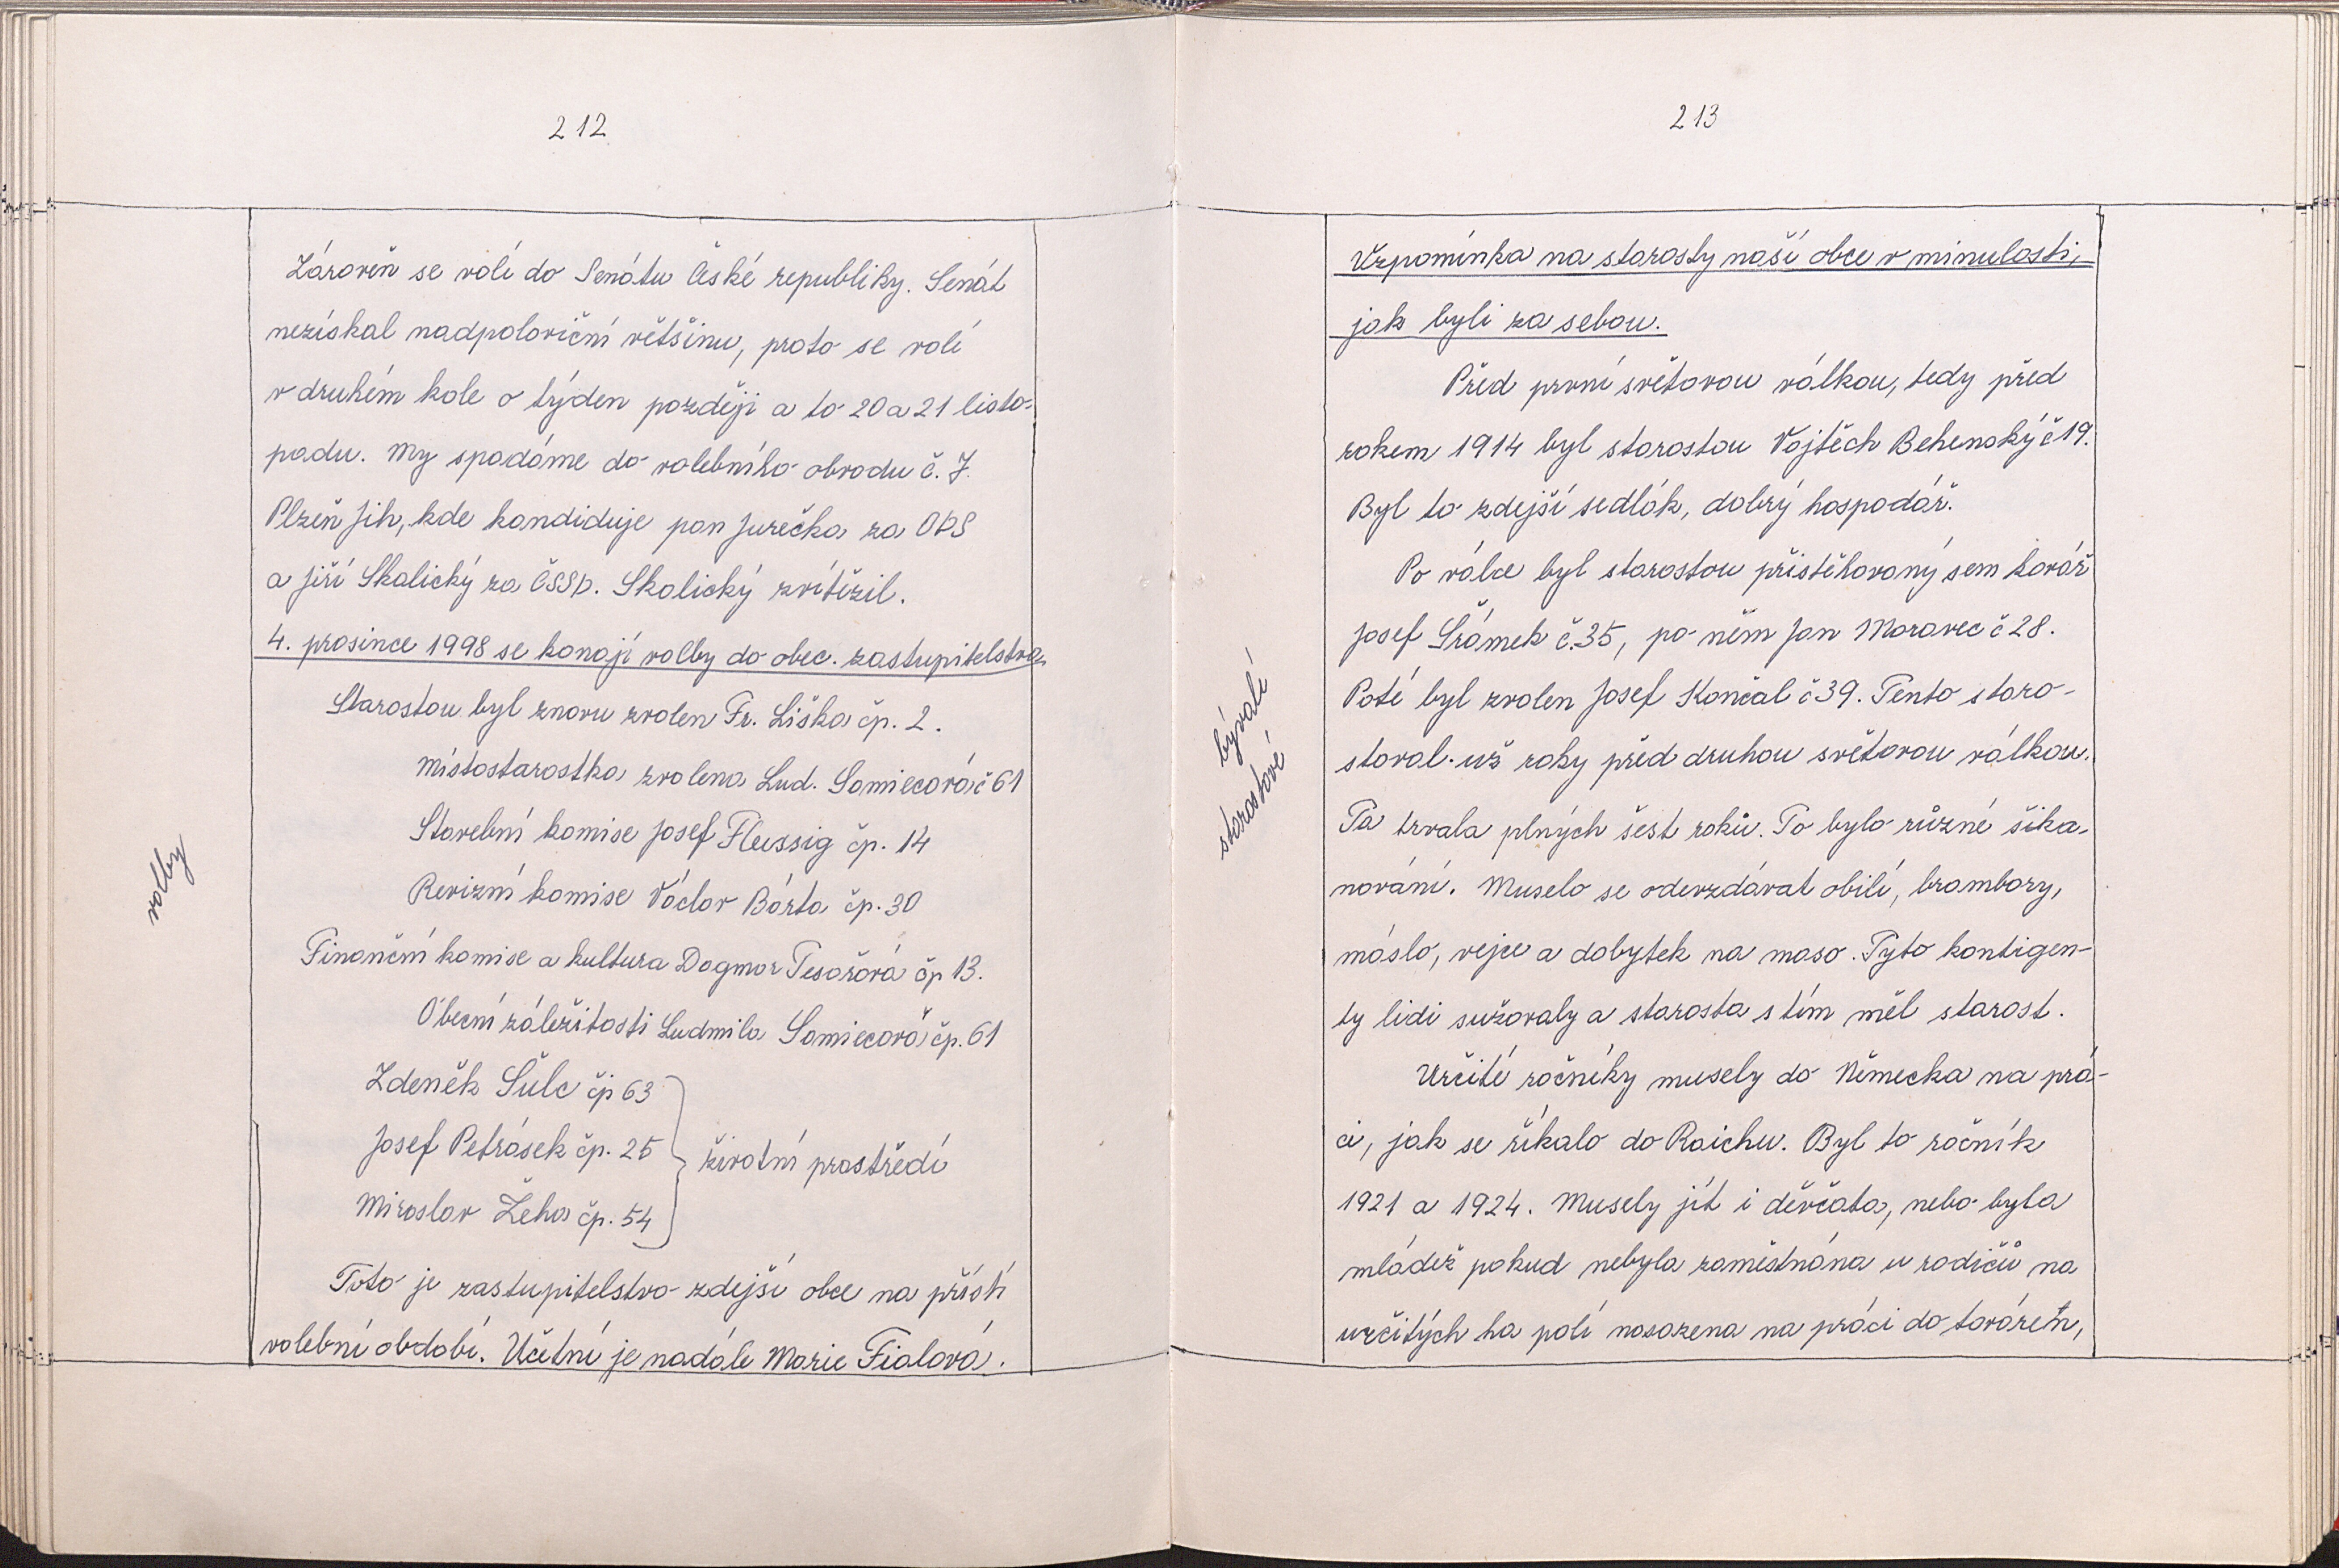 212
Zároveň se volí do Senátu České republiky. Senát
nezískal nadpoloviční většinu, proto se volí
v druhém kole o týden později a to 20 a 21 listo-
padu. My spadáme do volebního obvodu č. 7.
Plzeň Jih, kde kandiduje pan Jurečka za ODS
a Jiří Skalický za ČSSD. Skalický zvítězil.
4. prosince 1998 se konají volby do obec. zastupitelstva
Starostou byl znovu zvolen Fr. Liška čp. 2.
Místostarostka zvolena Lud. Samiecová č 61
Stavební komise Josef Flussig čp. 14
volby
Revizní komise Václav Bárta čp. 30
Finanční komise a kultura Dagmar Tesařová čp 13.
Obecní záležitosti Ludmila Samiecová čp. 61
Zdeněk Šulc čp 63
Josef Petrásek čp. 25
životní prostředí
Miroslav Žeha čp. 54
Toto je zastupitelstvo zdejší obce na příští
volební období. Účetní je nadále Marie Fialová.
213
Vzpomínka na starosty naší obce v minulosti,
jak byli za sebou.
Před první světovou válkou, tedy před
rokem 1914 byl starostou Vojtěch Behenský č 19.
Byl to zdejší sedlák, dobrý hospodář.
Po válce byl starostou přistěhovaný sem kovář
Josef Šrámek č. 35, po něm Jan Moravec č 28.
bývalí
starostové
Poté byl zvolen Josef Končal č 39. Tento staro-
stoval už roky před druhou světovou válkou.
Ta trvala plných šest roků. To bylo různé šika-
nování. Muselo se odevzdávat obilí, brambory,
máslo, vejce a dobytek na maso. Tyto kontigen-
ty lidi sužovaly a starosta s tím měl starost.
Určité ročníky musely do Německa na prá-
ci, jak se říkalo do Raichu. Byl to ročník
1921 a 1924. Musely jít i děvčata, nebo byla
mládež pokud nebyla zaměstnána u rodičů na
určitých ha polí nasazena na práci do továren,